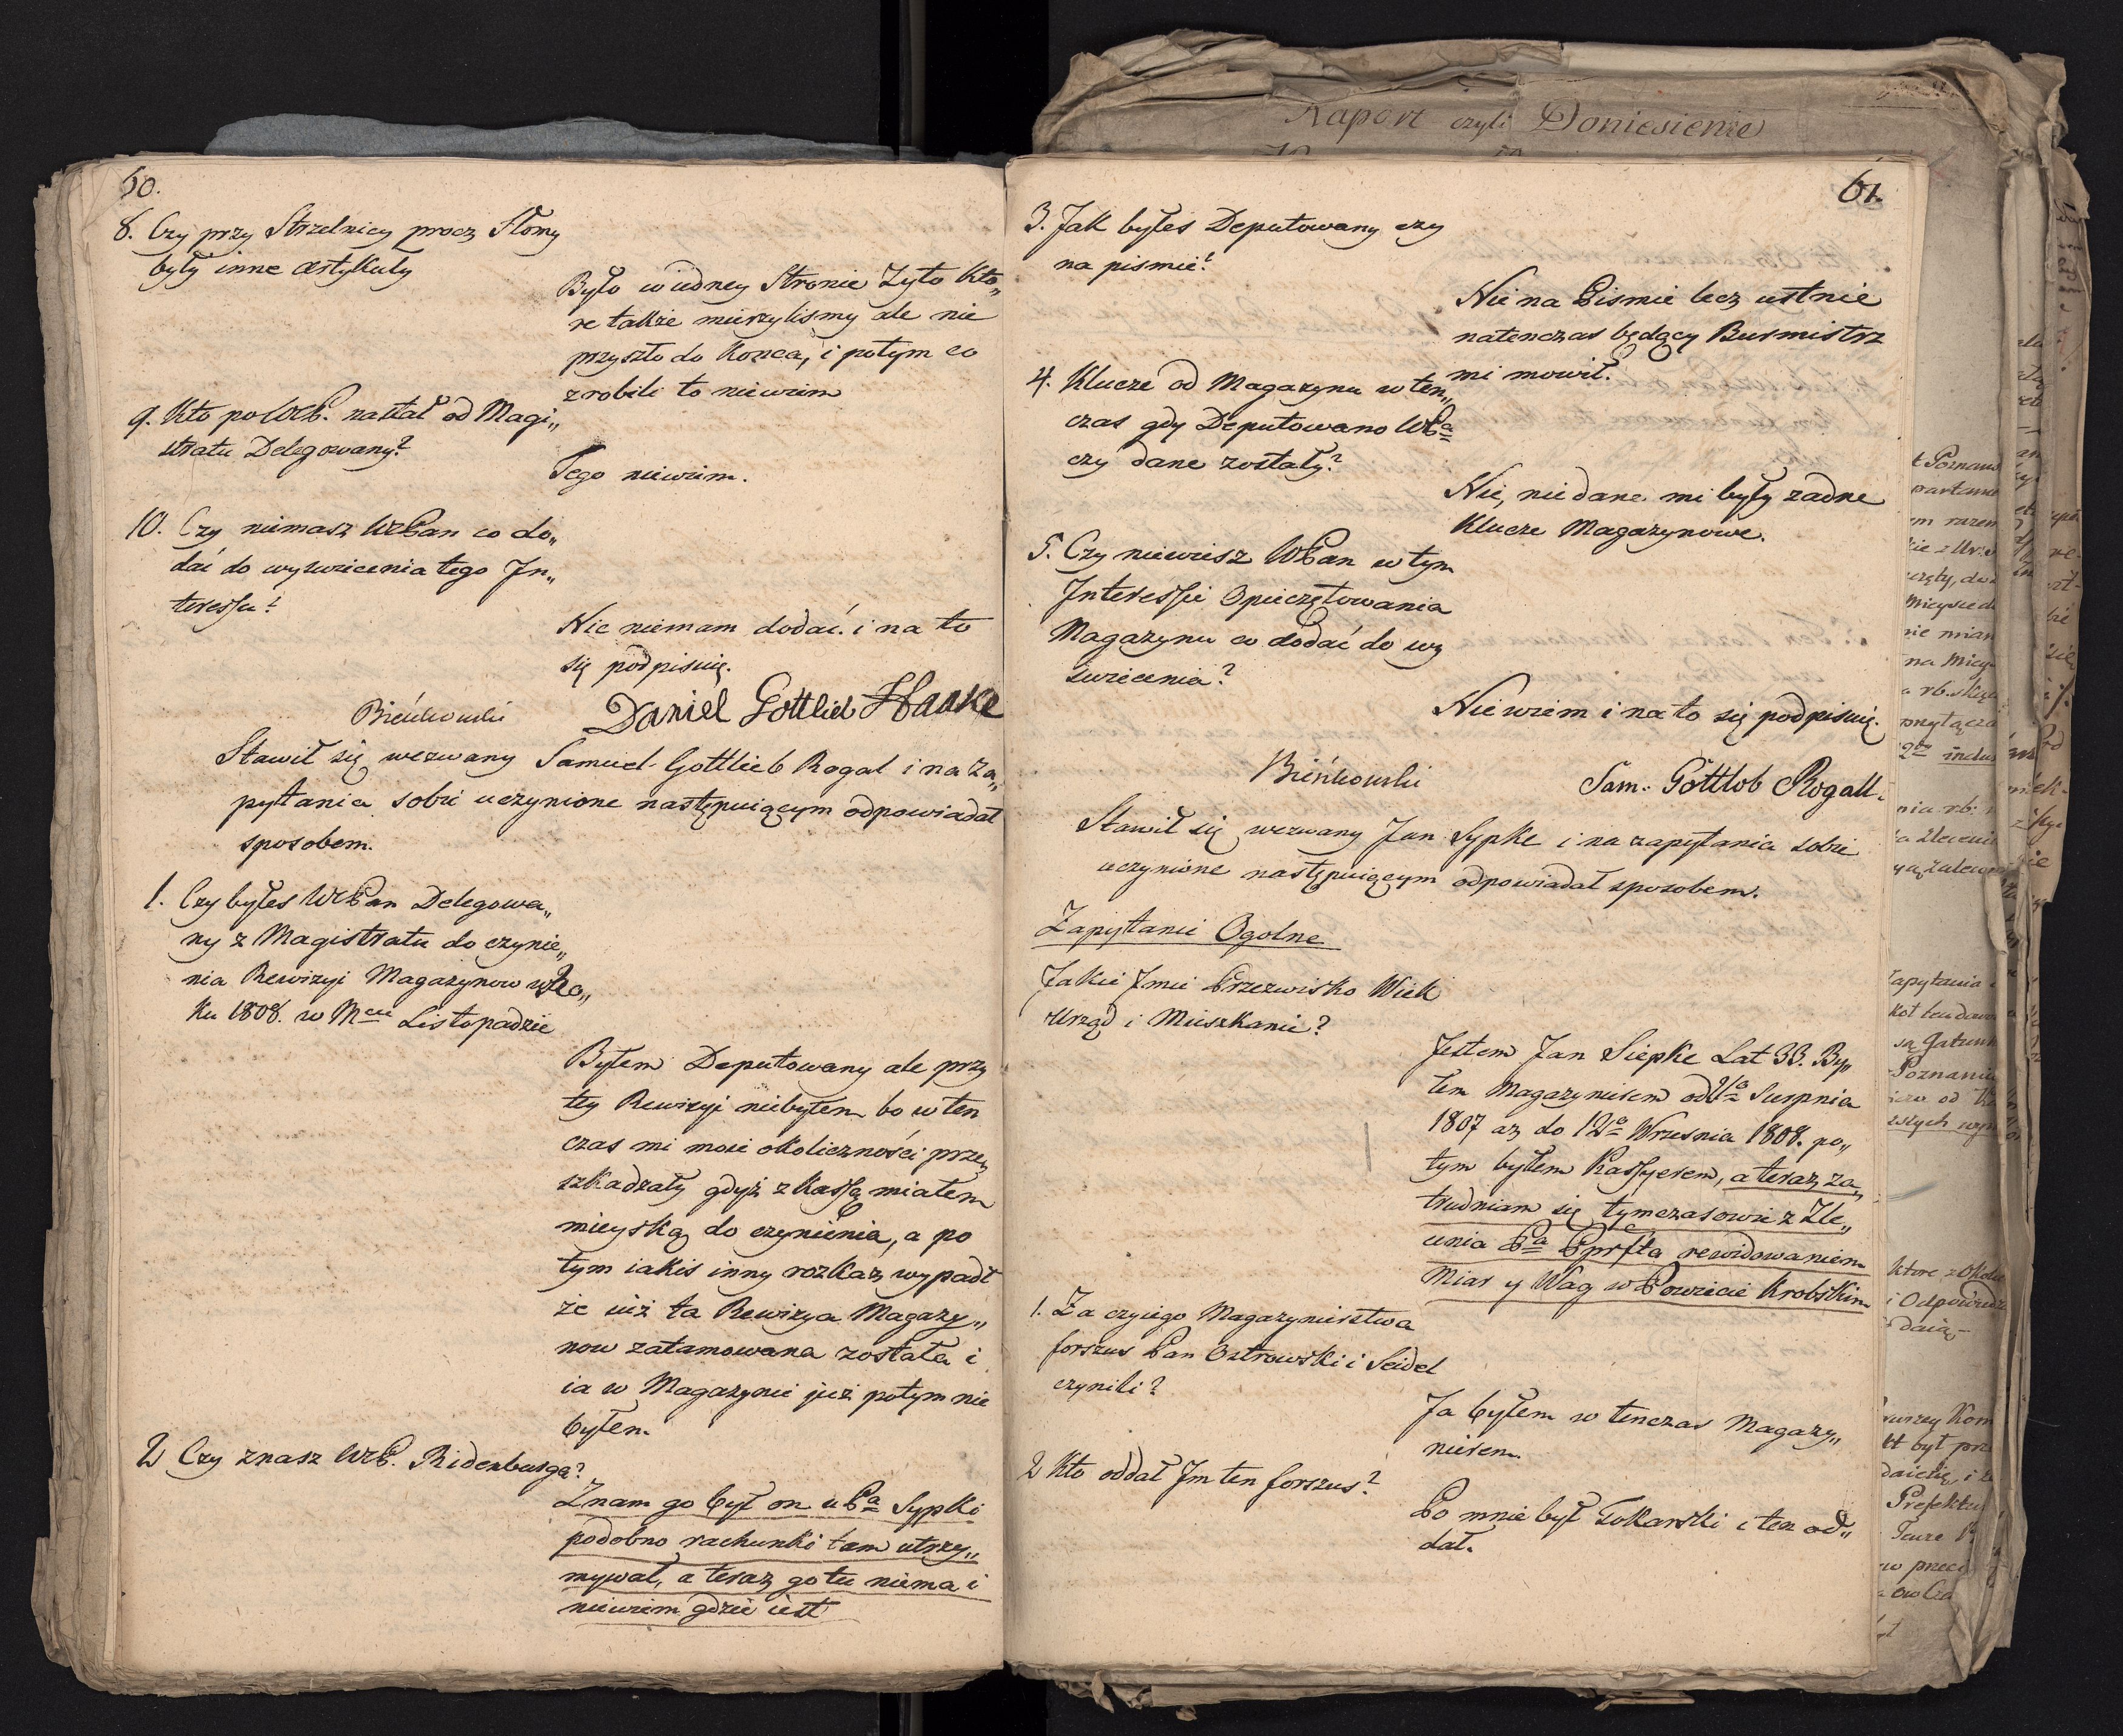 60.
8. Czy przy Strzelnicy procz Słomy
były inne artykuły
Było w iedney Stronie Zyto kto„
re także mierzylismy ale nie
przyszło do Konca, i potym co
zrobili to niewiem
9. Kto po WPP. nastał od Magi„
stratu Delegowany?
Tego niewiem.
10. Czy niemasz WPan co do„
dać do wyswiecenia tego In„
teressu?
Nic niemam dodać. i na to
się podpisuię.
Bieńkowski Daniel Gottlieb Haake
Stawił się wezwany Samuel Gottlieb Rogal i na za„
pytania sobie uczynione następuiącym odpowiadał
sposobem.
1. Czy byłes WPan Delegowa„
ny z Magistratu do czynie„
nia Rewizyi Magazynow w Ro„
ku 1808. w Mcu Listopadzie
Byłem Deputowany ale przy
tey Rewizyi niebyłem bo w ten
czas mi moie okoliczności prze„
szkadzały gdyż z Kassą miałem
mieyską do czynienia, a po
tym iakis inny rozkaz wypadł
że iuż ta Rewizya Magazy„
now zatamowana została i
ia w Magazynie już potym nie
byłem.
2 Czy znasz WP. Ridenburga?
Znam go był on u Pa Sypki
podobno rachunki tam utrzy„
mywał, a teraz go tu niema i
niewiem gdzie iest
Raport czyli Doniesienie
61.
3. Jak byłes Deputowany czy
na pismie?
Nie na Pismie lecz ustnie
natenczas będący Burmistrz
mi mowił.
4. Klucze od Magazynu w ten„
czas gdy Deputowano WPa
czy dane zostały?
Nie, nie dane mi były zadne
Klucze Magazynowe.
5. Czy niewiesz WPan w tym
Interessie Opieczętowania
Magazynu co dodać do wy
swiecenia?
Niewiem i na to się podpisuię.
Bieńkowski Sam. Gottlob Rogall.
Stawił się wezwany Jan Sypke i na zapytania sobie
uczynione następuiącym odpowiadał sposobem.
Zapytanie Ogolne
Jakie Imie Przezwisko Wiek
Urząd i Mieszkanie?
Jestem Jan Siepke Lat 33. By„
łem Magazynierem od Sierpnia
1807 az do 12o Wrzesnia 1808. po„
tym byłem Kassyerem, a teraz za„
trudniam się tymczasowie z Zle„
cenia Pa Pprfta rewidowaniem
Miar y Wag w Powiecie Krobskim
1. Za czyiego Magazynierstwa
forszus Pan Ostrowski i Seidel
czynili?
Ja byłem w tenczas Magazy„
nierem.
2 Kto oddał Im ten forszus?
Po mnie był Tokarski i ten od„
dał.